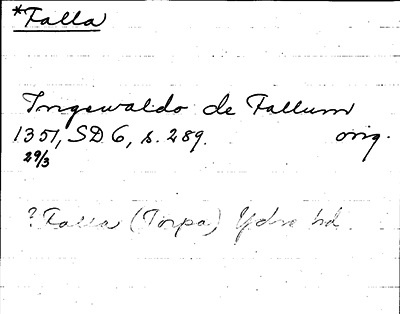 *Falla
Ingewaldo de Fallum
1351, SD 6, s. 289. orig.
29/3
? Falla (Torpa) Ydre hd